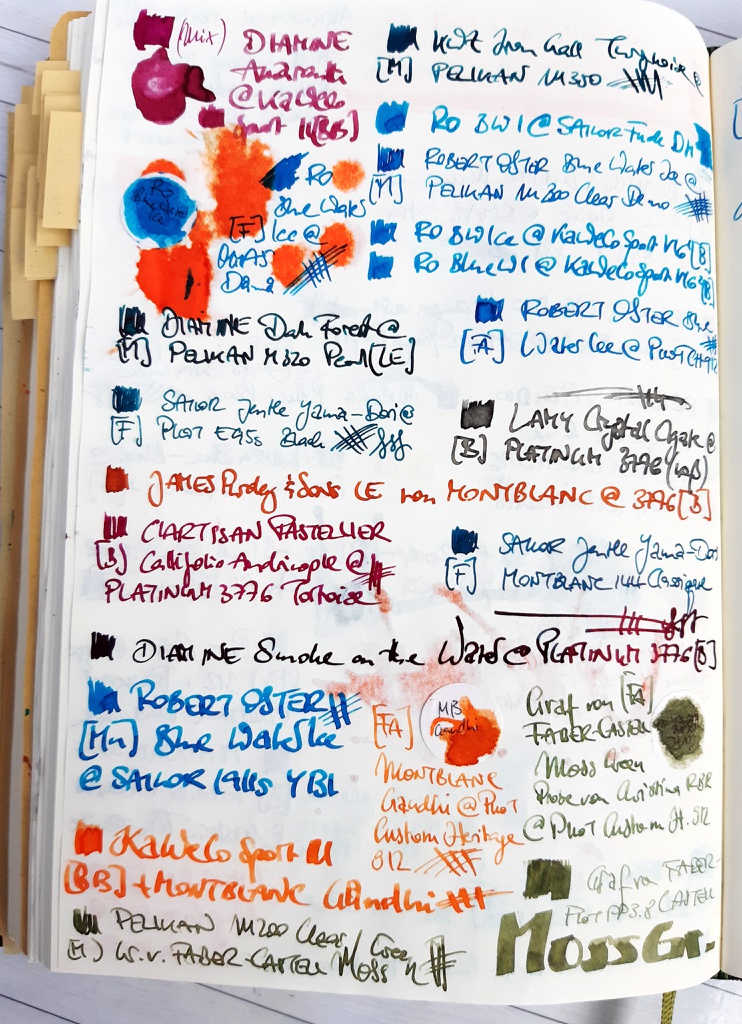 (Mix) DIAMINE
Amaranth
@ KaWeCo
Sport [BB]
Iron Gall Turquoise @
[M] PELIKAN M350
RO BWI @ SAILOR Fude
ROBERT OSTER Blue Water Ice @
[M] PELIKAN M200 Clear Demo
RO BW Ice @ KaWeCo Sport [B]
RO Blue WI @ KaWeCo Sport [B]
RO
Blue Water
Ice
RO
Blue Water
[F] Ice @
Demo
DIAMINE Dark Forest @
[M] PELIKAN M320 Pearl [LE]
ROBERT OSTER Blue
[FA] Water Ice @ PILOT CH 912
SAILOR Jentle Yama-Dori @
[F] Pilot E95s Black
LAMY Crystal Agate @
[B] PLATINUM 3776
JAMES Purdey & Sons LE von MONTBLANC @ 3776 [B]
L'ARTISAN PASTELLIER
[B] Callifolio Andrinople @
PLATINUM 3776 Tortoise
SAILOR Jentle Yama-Dori
[F] MONTBLANC 144 Classique
DIAMINE Smoke on the Water @ PLATINUM 3776 [B]
ROBERT OSTER
Blue Water Ice
@ SAILOR 1911s YBL
MB
Gandhi
[FA]
MONTBLANC
Gandhi @ Pilot
Custom Heritage
912
Graf von [FA]
FABER-CASTELL
Moss Green
Probe von Christina
@ Pilot Custom H. 912
KaWeCo Sport
[BB] + MONTBLANC Gandhi
Graf von FABER-
Pilot PP 3.8 CASTELL
MossGr.
PELIKAN M200 Clear / Green
[M] G.v. FABER-CASTELL Moss